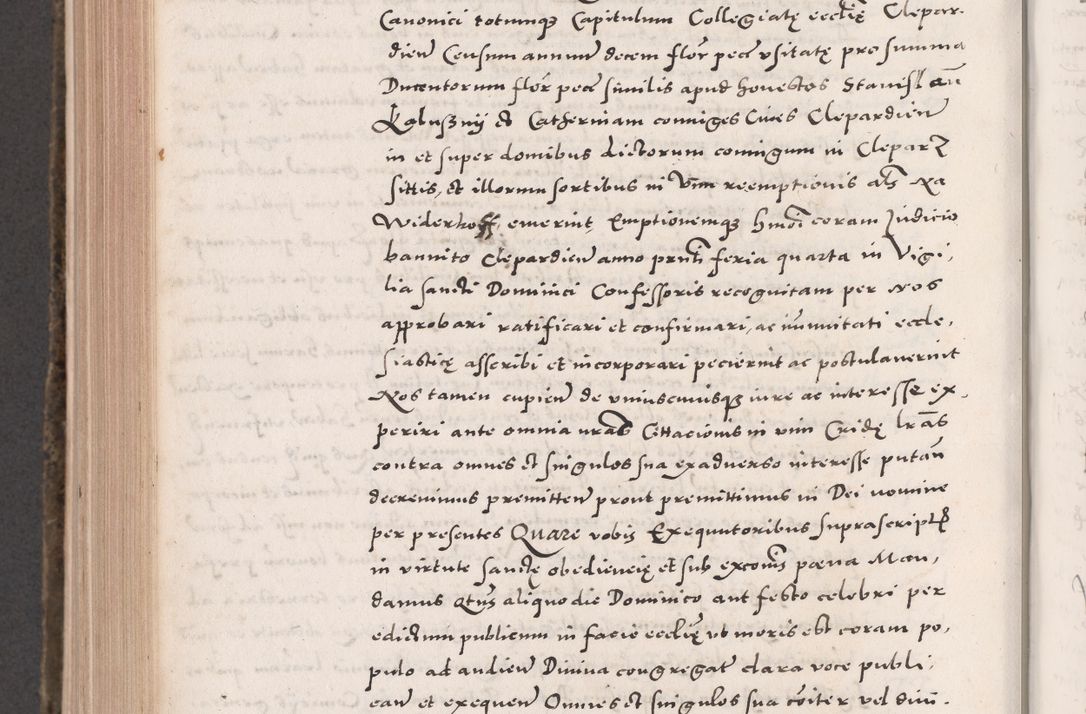 Canonici totumque Capitulum Collegiatę eccl̃ię Clepar-
dien̄ Censum annuum decem flor̄ pec̄ vsitatę pro summa
Ducentorum flor̄ pec̄ similis apud honestos Stanisl aū
Kalusznij et Catherinam coniuges Cives Clepardien̄
in et super domibus dictorum coniugum in Clepar
sittis, et illorum sortibus in vim reemptionis al̄s Na
Widerkoff, emerint, Emptionemque hm̄oi coram Judicio
bannito Clepardien̄ anno prn̄ti feria quarta in Vigi,
lia sancti Dominici Confessoris recognitam per Nos
approbari ratificari et confirmari, ac im̄unitati eccle,
siasticę asscribi et incorporari pecierint ac postulaverint
Nos tamen cupien̄ de vniuscuiusque iure ac interesse ex,
periri ante omnia nr̄as Cittacionis in vim Cridę lr̄as
contra omnes et singulos sua exadverso interesse putan̄
decrevimus premitten̄ prout premittimus in Dei nomine
per presentes Quare vobis Exequutoribus suprascript
in virtute sanctę obediencię et sub excōis pœna Man,
damus Qtn̄s aliquo die Dominico aut festo celebri per
edictum publicum in facie eccl̄ię vt moris est coram po,
pulo ad audien̄ Divina congregat̄ clara voce publi,
can̄ et exequen̄ Omnes et singulos sua cōiter vel divi-